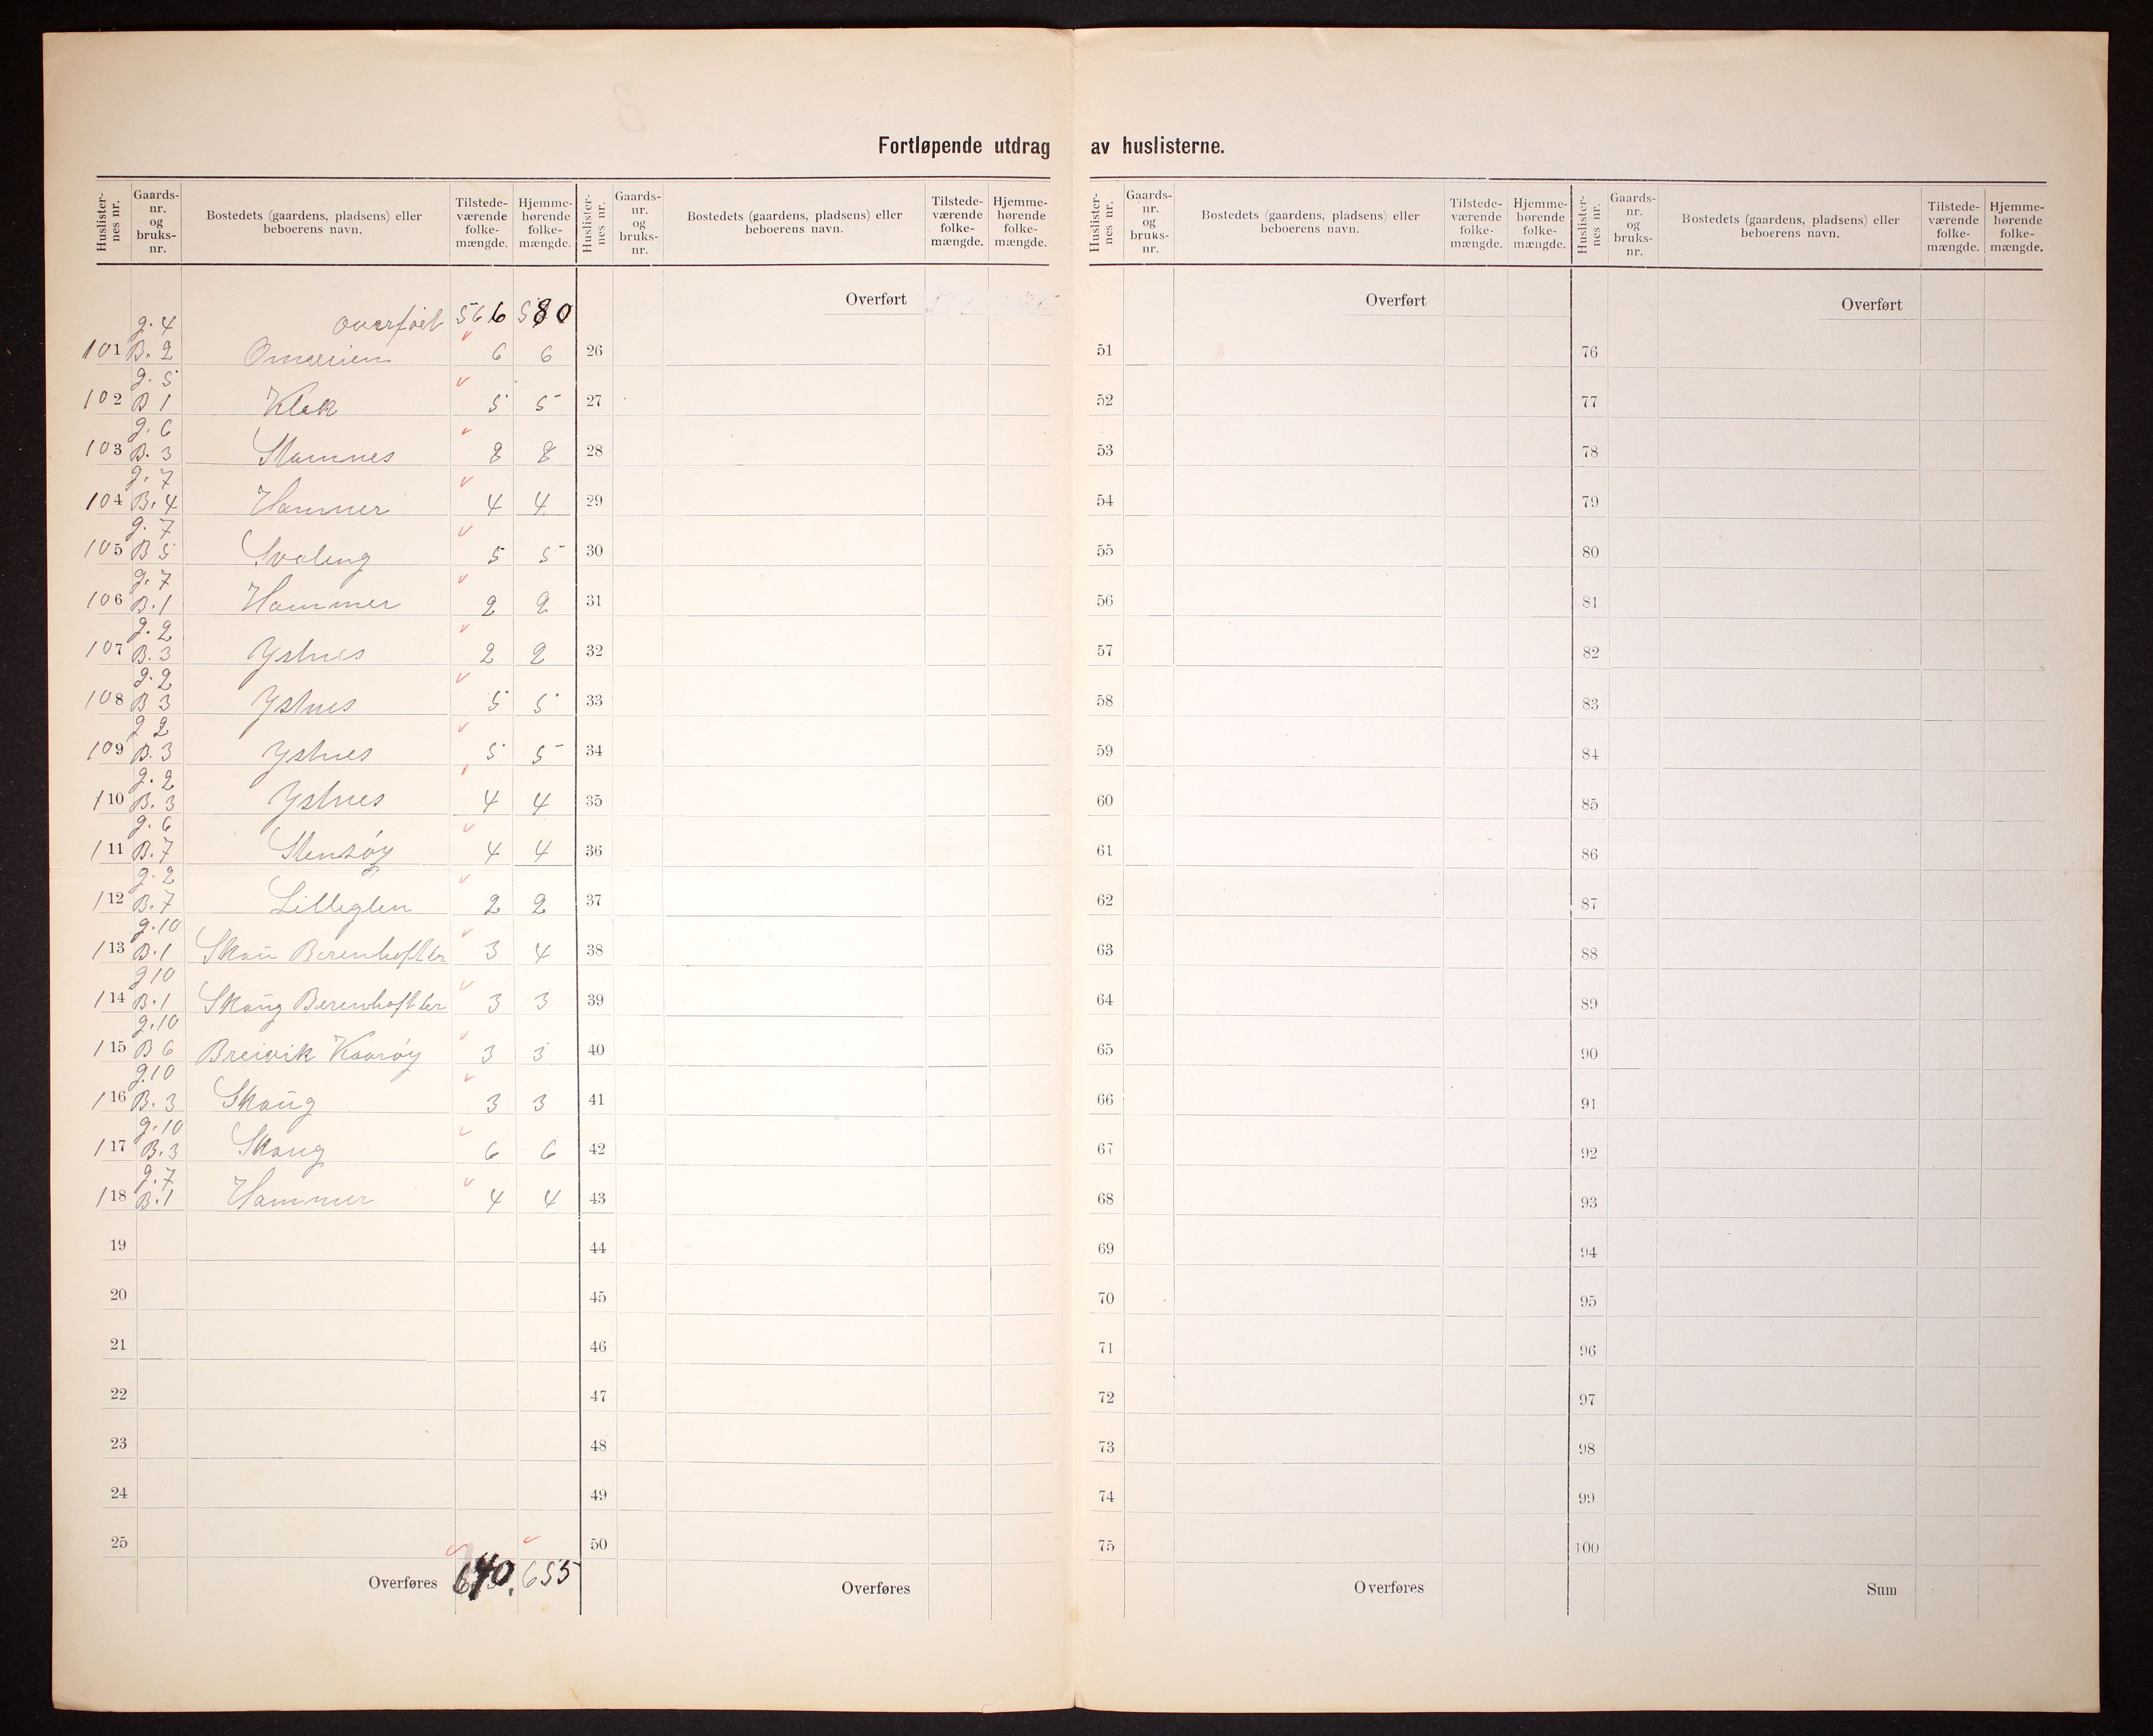 Fortløpende utdrag av huslisterne.
Huslisternes nr. Gaards-nr. og bruks-nr. Bostedets (gaardens, pladsens) eller beboerens navn. Tilstedeværende folkemængde. Hjemmehørende folkemængde.
Huslisternes nr. Gaards-nr. og bruks-nr. Bostedets (gaardens, pladsens) eller beboerens navn. Tilstedeværende folkemængde. Hjemmehørende folkemængde.
Huslisternes nr. Gaards-nr. og bruks-nr. Bostedets (gaardens, pladsens) eller beboerens navn. Tilstedeværende folkemængde. Hjemmehørende folkemængde.
Huslisternes nr. Gaards-nr. og bruks-nr. Bostedets (gaardens, pladsens) eller beboerens navn. Tilstedeværende folkemængde. Hjemmehørende folkemængde.
overført 566 580
101 g. 4 B. 2 6 6
102 g. 5 B 1 Klek 5 5
103 g. 6 B. 3 Stamnes 8 8
104 g. 7 B. 4 Hammer 4 4
105 g. 7 B 5 Svaleng 5 5
106 g. 7 B. 1 Hammer 2 2
107 g. 2 B. 3 Ystnes 2 2
108 g. 2 B 3 Ystnes 5 5
109 g 2 B. 3 Ystnes 5 5
110 g. 2 B. 3 Ystnes 4 4
111 g. 6 B. 7 Stensøy 4 4
112 g. 2 B. 7 Lilleglen 2 2
113 g. 10 B. 1 3 4
114 g 10 B. 1 Skaug 3 3
115 g. 10 B 6 Breivik Kvarøy 3 3
116 g. 10 B. 3 Skaug 3 3
117 g. 10 B. 3 Skaug 6 6
118 g. 7 B. 1 Hammer 4 4
19
20
21
22
23
24
25
Overføres 640. 655
Overført
26
27
28
29
30
31
32
33
34
35
36
37
38
39
40
41
42
43
44
45
46
47
48
49
50
Overføres
Overført
51
52
53
54
55
56
57
58
59
60
61
62
63
64
65
66
67
68
69
70
71
72
73
74
75
Overføres
Overført
76
77
78
79
80
81
82
83
84
85
86
87
88
89
90
91
92
93
94
95
96
97
98
99
100
Sum